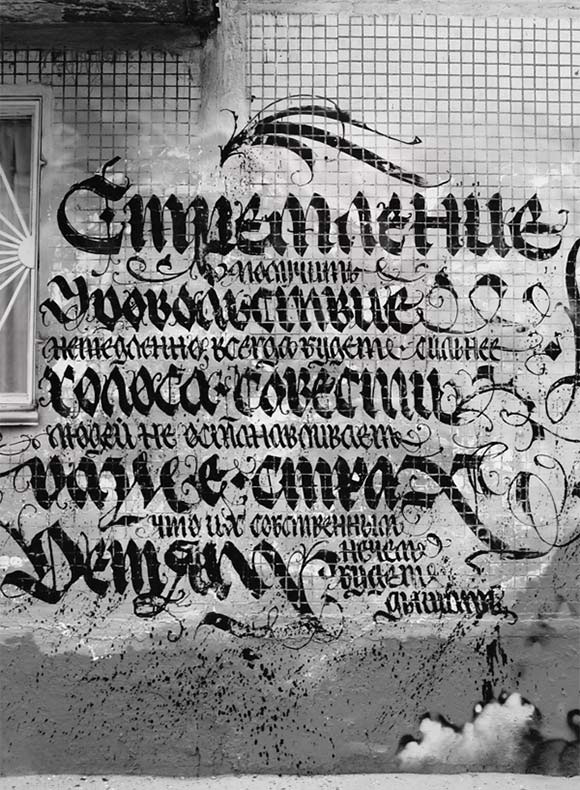 Стремление
получить
удовольствие
немедленно, всегда будет сильнее
голоса совести
людей не останавливает
даже страх
что их собственным
детям нечем
будет
дышать